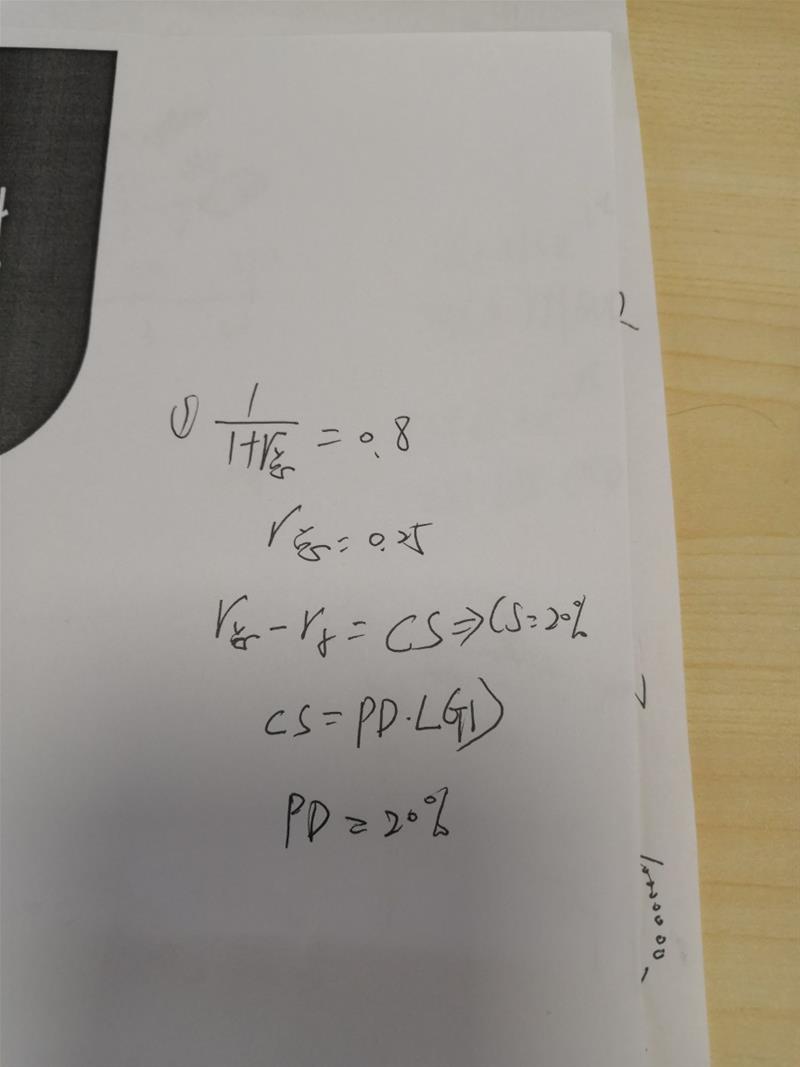 ① 1/(1+r总) = 0.8
r总 = 0.25
r总 - rf = CS ⇒ CS = 20%
CS = PD · LGD
PD = 20%